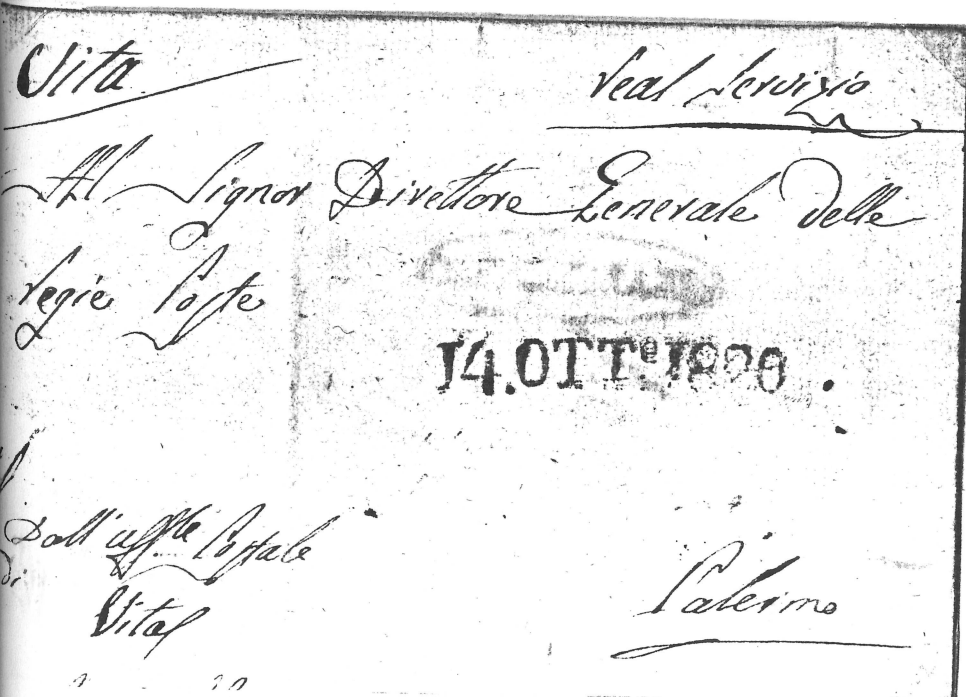 Vita
Real Servizio
Al Signor Direttore Generale delle
regie Poste
14.OTTe.1820.
Dall'uff.le Postale
di
Vita
Palermo